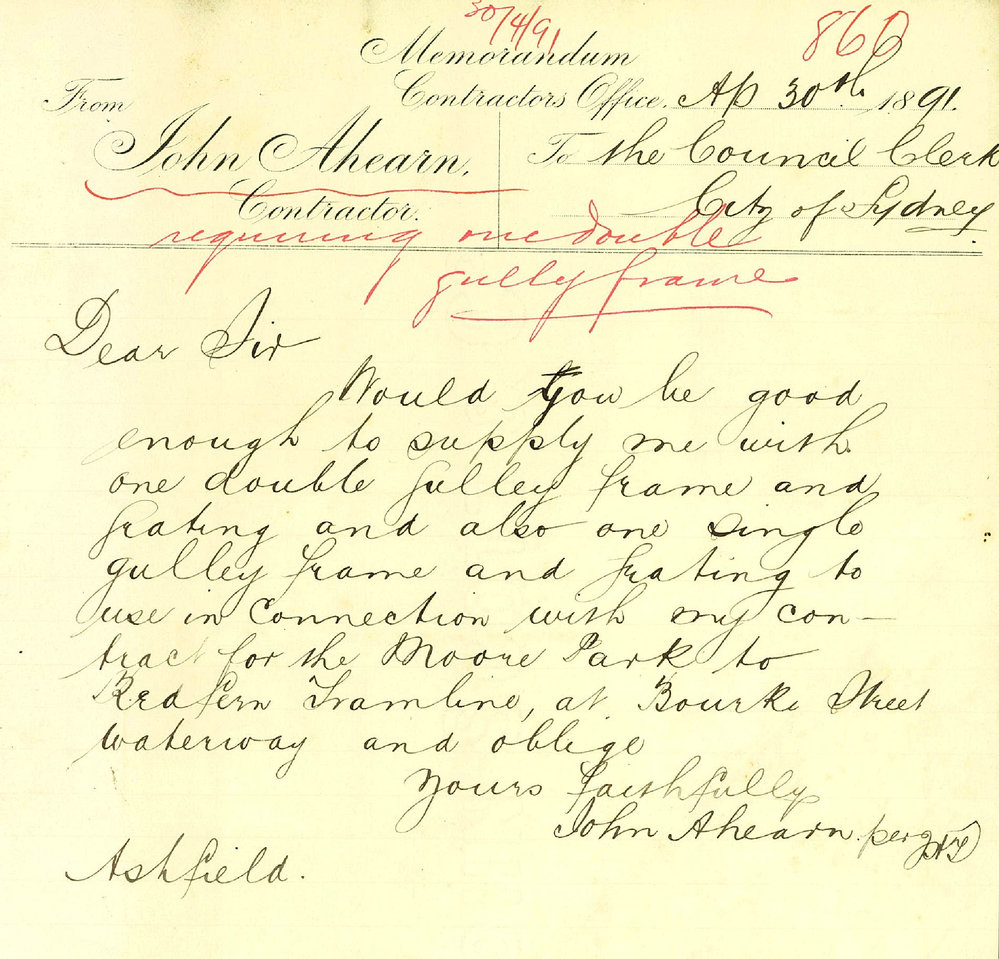 30/4/91
860
Memorandum
Contractors Office, Ap 30th 1891.
From
John Ahearn,
Contractor.
To the Council Clerk
City of Sydney
requiring one double
gully frame
Dear Sir
Would you be good
enough to supply me with
one double gulley frame and
grating and also one single
gulley frame and grating to
use in connection with my con-
tract for the Moore Park to
Redfern Tramline, at Bourke Street
waterway and oblige
Yours faithfully
John Ahearn per
Ashfield.